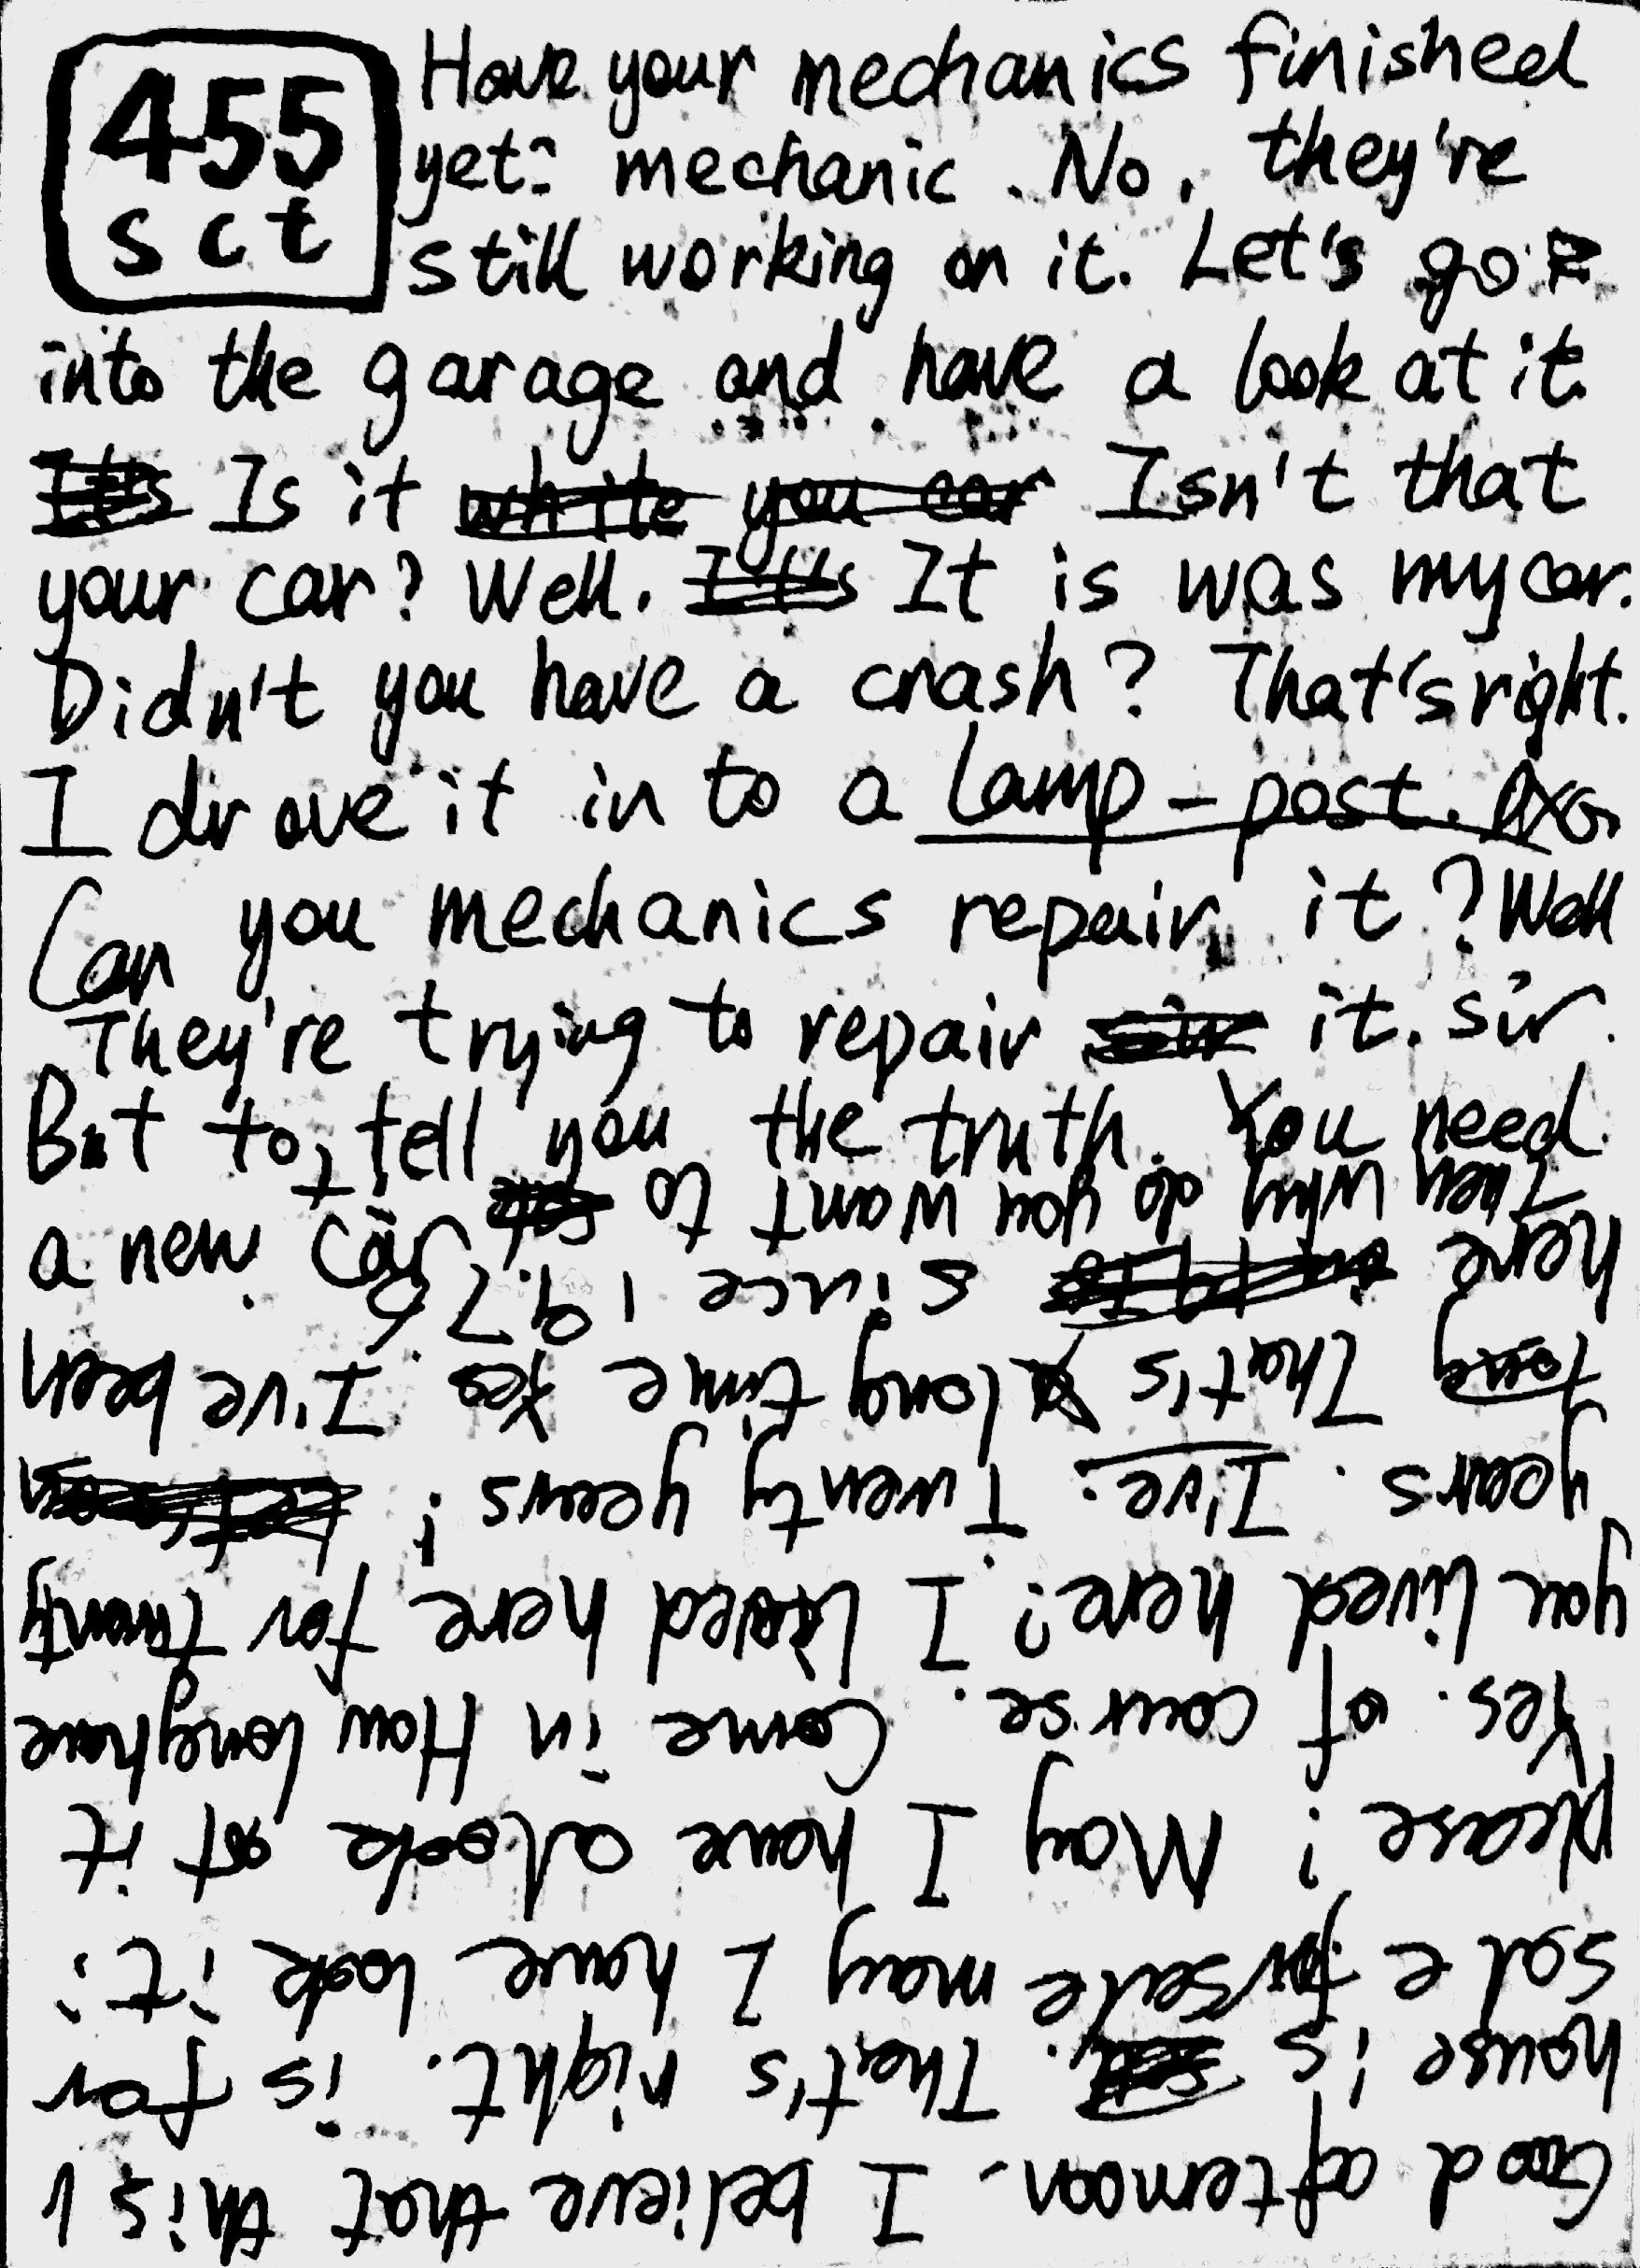 455
sct
Have your mechanics finished
yet? mechanic. No. they're
still working on it. Let's go
into the garage and have a look at it.
It's Is it white you car Isn't that
your car? Well. It's It is was my car.
Didn't you have a crash? That's right.
I drove it in to a lamp-post.
Can you mechanics repair it? Well
They're trying to repair sir it. sir.
But to tell you the truth. You need
a new car
Good afternoon. I believe that this
house is That's right. is for
sale for sale may I have look it?
please? May I have a look at it
Yes. of course. Come in How long have
you lived here? I lived here for twenty
years. I've. Twenty years?
long That's a long time Yes I've been
here since 1976.
Then why do you want to